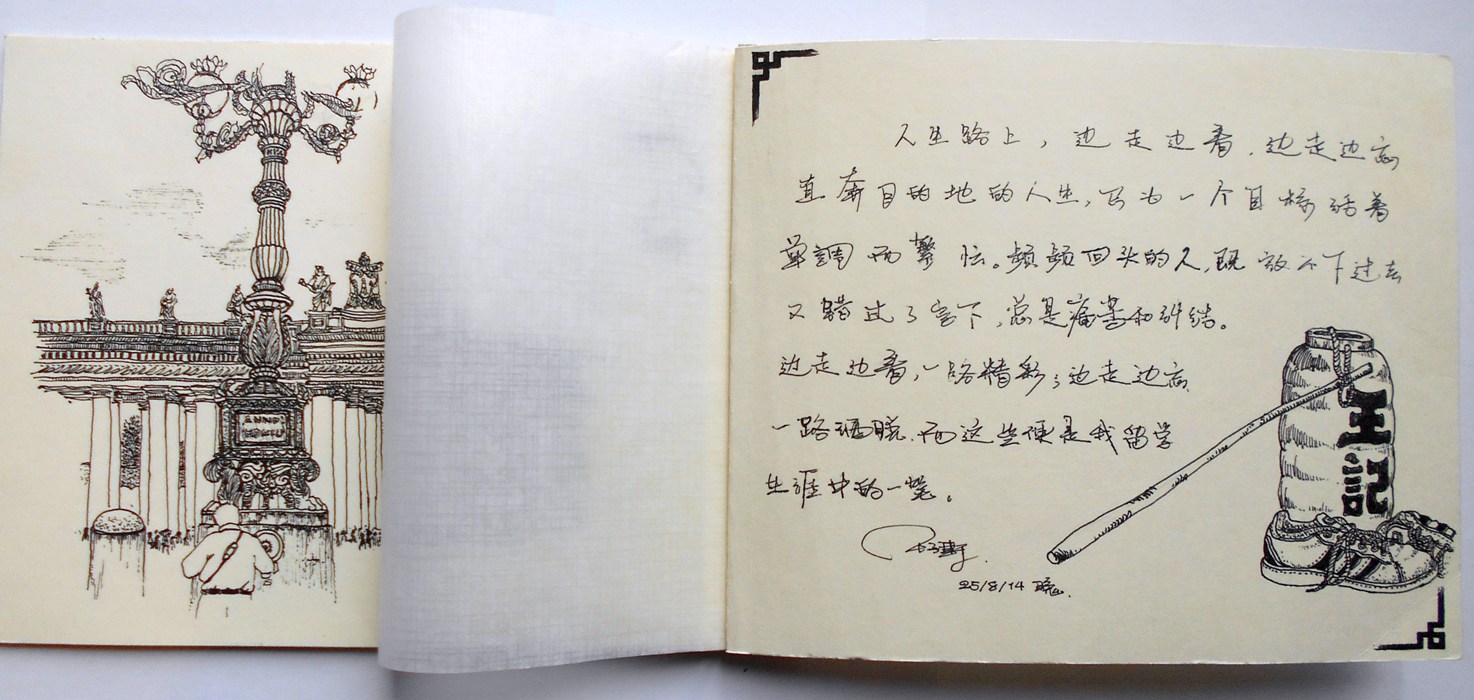 人生路上，边走边看，边走边忘
直奔目的地的人生，只为一个目标活着
單調而繁忙。频频回头的人，既放不下过去
又错过了当下，总是痛苦和纠结。
边走边看，一路精彩；边走边忘
一路洒脱，而这些便是我留学
生涯中的一笔。
25/8/14 晚.
王記
ANNO